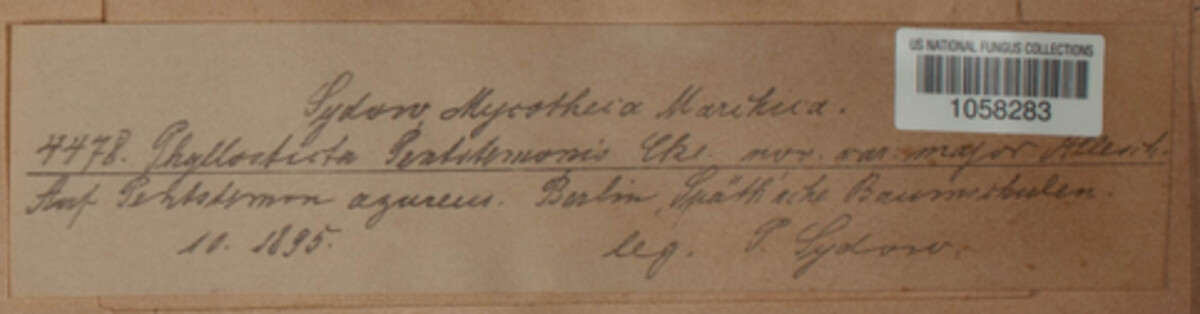 Sydow, Mycotheca Marchica.
4478. Phyllosticta Pentstemonis Cke. nov. var. major Allesch.
Auf Pentstemon azureus. Berlin, Späth'sche Baumschulen.
10. 1895. leg. P. Sydow.
US NATIONAL FUNGUS COLLECTIONS
1058283